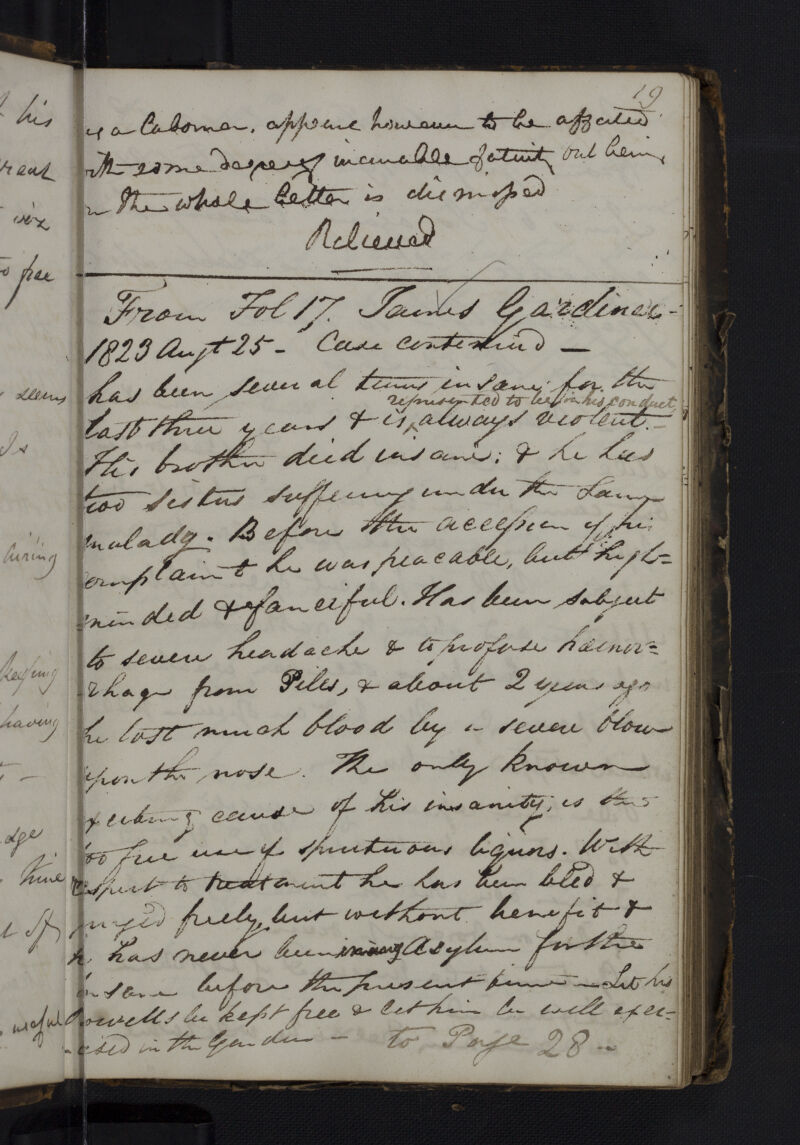 19
as a Labourer. appears however to be affected
with some degree of incurable fatuity but being
on the whole better is dismissed
Relieved
From Fol 17. James Gardiner -
1823 Augt 25 - Case continued -
has been several times insane for the
represented to be in his conduct
last three years & is ^ always violent. -
His brother died insane: & he has
two sisters suffering under the same
malady. Before the accession of his
complaint he was peacable, but high=
minded & fanciful. Has been subject
to severe headache & to profuse hæmor=
rhage from Piles, & about 2 years ago
he lost much blood by a severe blow
upon the nose. The only known
exciting cause of his insanity, is the
too free use of spirituous liquors. With
respect to treatment he has been bled &
purged freely, but without benefit &
he has never been in any Asylum for the
insane before the present time - Let his
bowells be kept free & let him be well exer=
cised in the Garden - to Page 28 -
his
vix
to free
seems
airing
keeping
having
edge
time
t of
useful